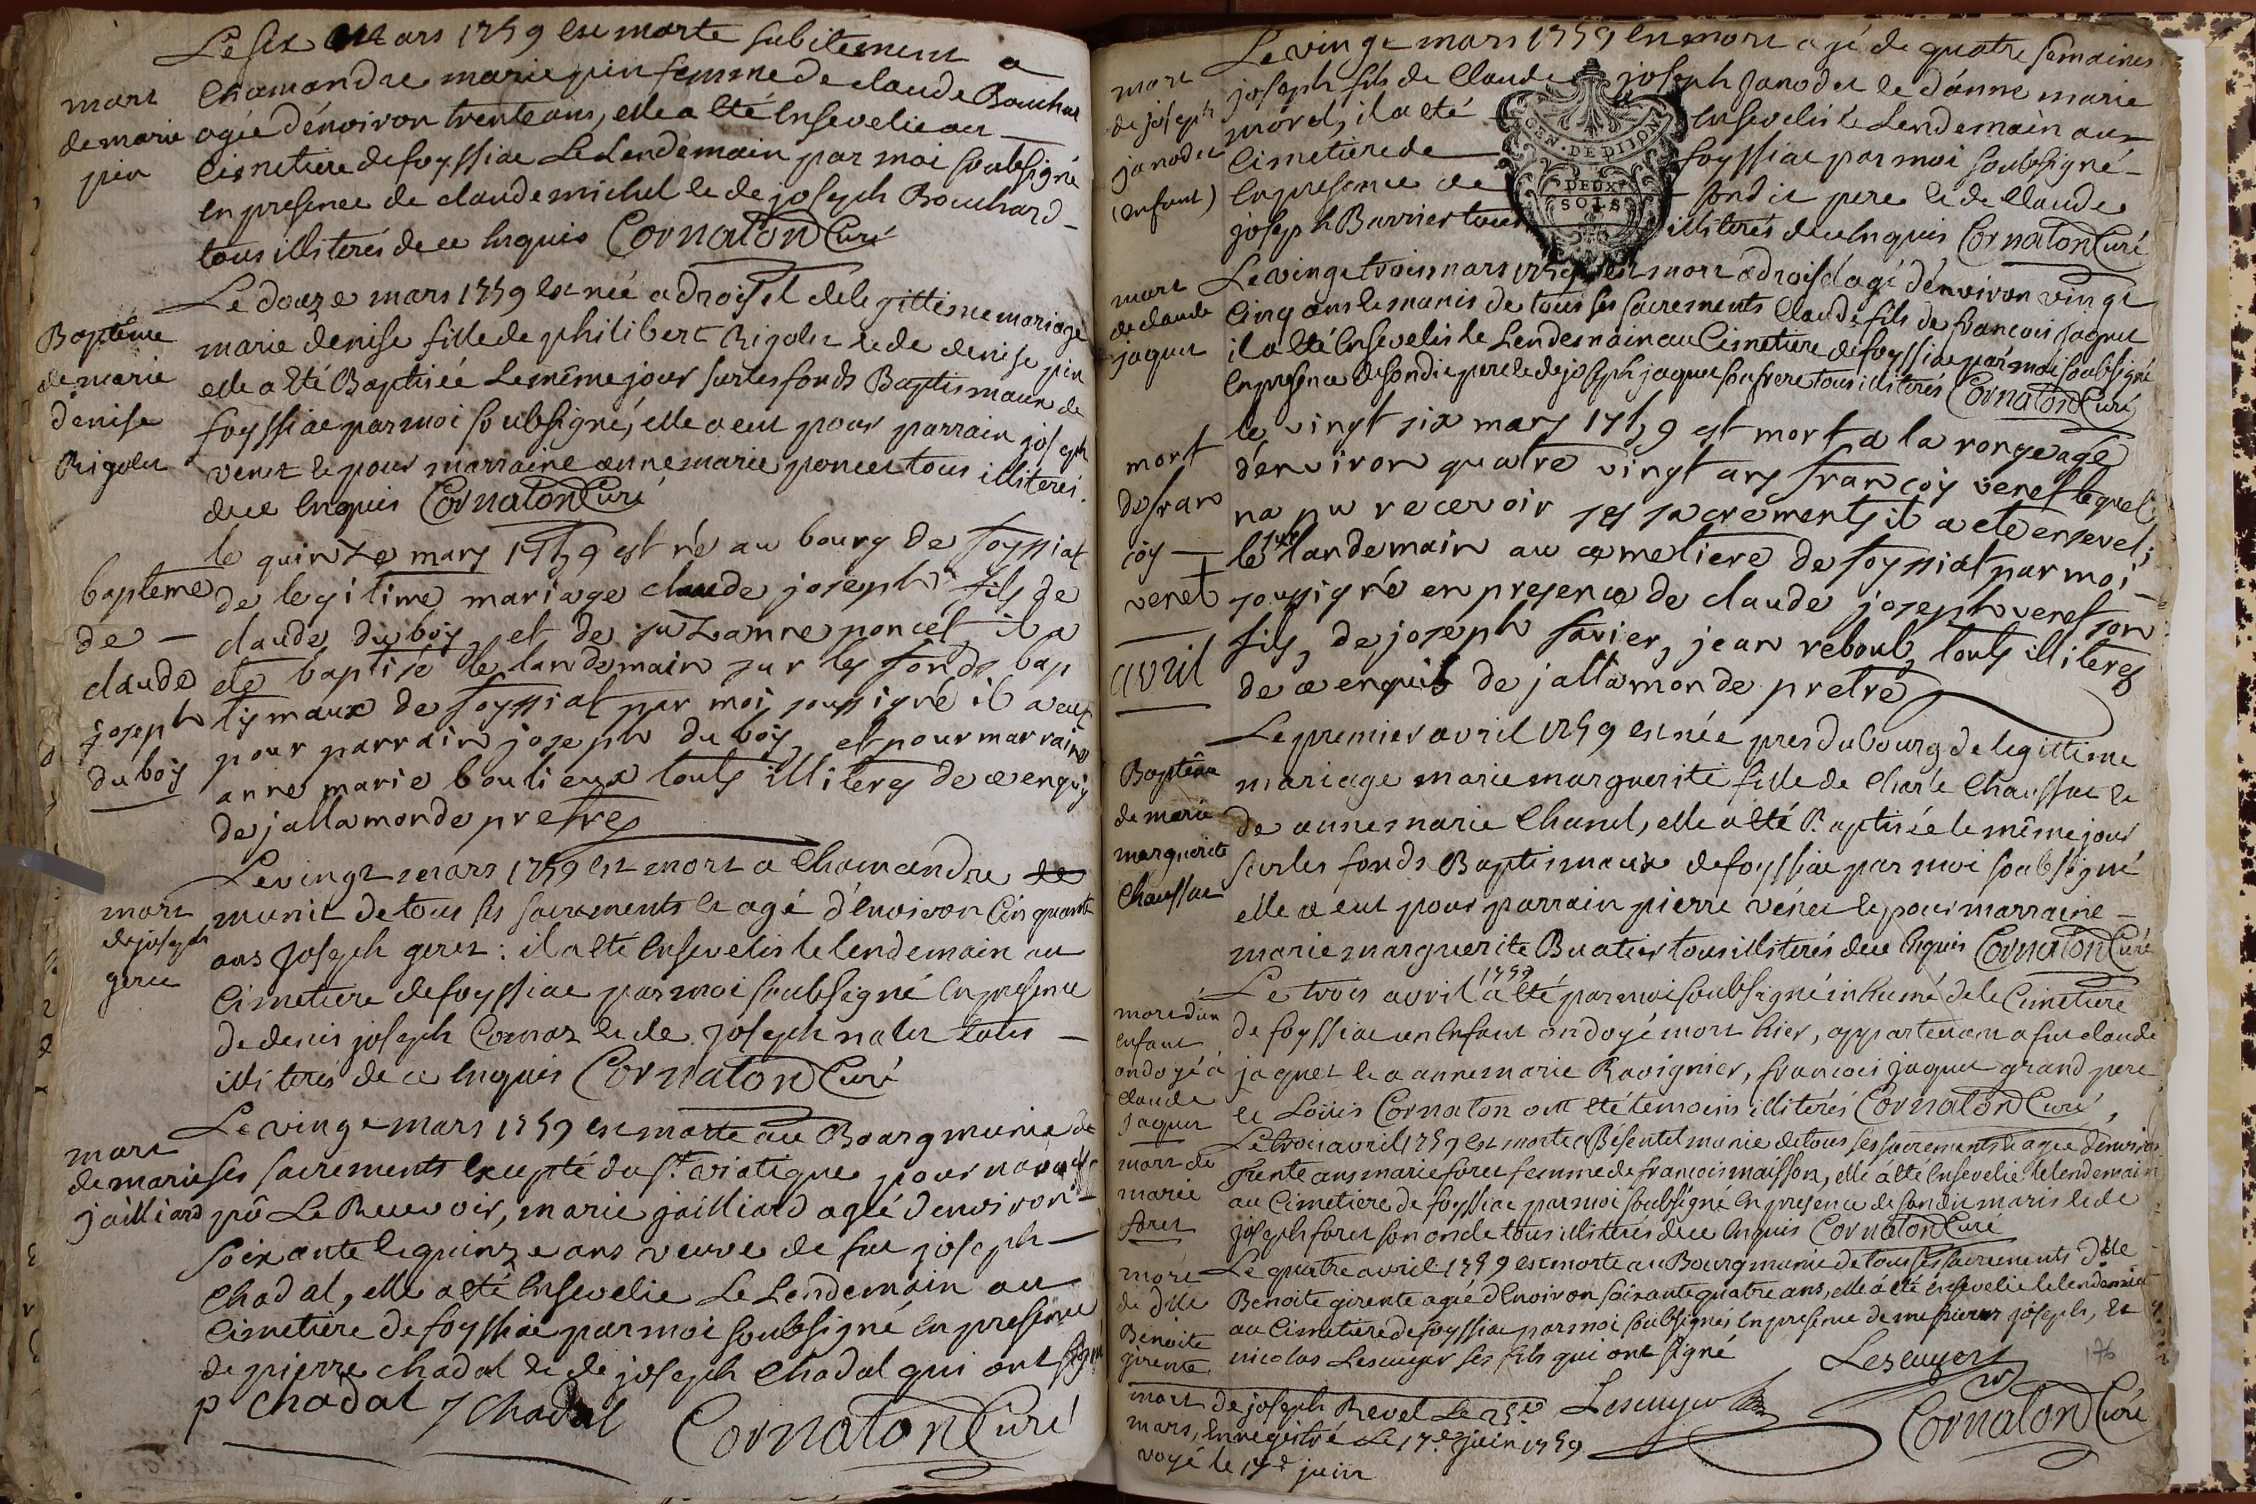 Le six mars 1759 est morte subitement a
Chamandre marie pin femme de claude Bouchar
mort
de marie
pin
agée d'environ trente ans, elle a eté ensevelie au
Cimetiere de foyssiac Le Lendemain par moi soubsigné
en presence de claude michel et de joseph Bouchard
tous illiterés de ce enquis Cornaton Curé
Le douze mars 1759 est née a droisel de legittime mariage
Baptême
de marie
denise
Rigolet
marie denise fille de philibert Rigolet et de denise pin
elle a eté Baptisée le même jour sur les fonds Baptismaux de
foyssiac par moi soubsigné, elle a eut pour parrain joseph
venet et pour marraine anne marie poncet tous illiterés.
de ce enquis Cornaton Curé
le quinze mars 1759 est né au bourg de foyssiat
bapteme
de
claude
joseph
du bois
de legitime mariage claude joseph fils de
claude du bois et de suzanne poncet il a
eté baptisé le landemain sur les fonds bap
tismaux de foyssiat par moi soussigné il a eut
pour parrain joseph du bois, et pour marraine
anne marie boulieux touts illiteres de ce enquis
de jallamonde pretre
Le vingt mars 1759 est mort a Chamandre de
mort
de joseph
geret
munit de tous ses sacrements et agé d'environ Cinquante
ans Joseph geret : il a eté ensevelis le lendemain au
Cimetiere de foyssiac par moi soubsigné en presence
de denis joseph Cornaz et de joseph nalet tous
illiterés de ce enquis Cornaton Curé
Le vingt mars 1759 est morte au Bourg munie de
mort
de marie
jailliard
ses sacrements excepté du st. viatique pour n'avoir
pû Le Recevoir, marie jailliard agée d'environ
soixante et quinze ans veuve de feu joseph
Chadal, elle a eté ensevelie Le Lendemain au
Cimetiere de foyssiac par moi soubsigné en presence
de pierre chadal et de joseph Chadal qui ont signé
p chadal J Chadal Cornaton Curé
Le vingt mars 1759 est mort agé de quatre semaines
mort
de joseph
janodet
(enfant)
joseph fils de Claude joseph Janodet et d'anne marie
morel, il a eté ensevelis le Lendemain au
Cimetiere de foyssiac par moi soubsigné
en presence de sondit pere et de Claude
joseph Barrier tous illiterés de ce enquis Cornaton Curé
GEN. DE DIJON
DEUX
SOLS
Le vingt trois mars 1759 est mort a droisel agé d'environ vingt
mort
de claude
jaquet
Cinq ans et munis de tous ses sacrements Claude fils de francois Jaquet
il a eté ensevelis le Lendemain au Cimetiere de foyssiac par moi soubsigné
en presence de sondit pere et de joseph jaquet son frere tous illiterés Cornaton Curé
le vingt six mars 1759 est mort a la ronge agé
mort
de fran
cois
venet
d'environ quatre vingt ans francois venet lequel
na pu recevoir ses sacrements il a ete enseveli
le landemain au cemetiere de foyssiat par moi
soussigné en presence de claude joseph venet son
fils, de joseph favier, jean reboul, touts illiteres
de ce enquis de jallamonde pretre
avril
Le premier avril 1759 est née pres du bourg de legittime
Baptême
de marie
marguerite
Chaussat
mariage marie marguerite fille de Charle Chaussat et
de anne marie Chanel, elle a eté Baptisée le même jour
sur les fonds Baptismaux de foyssiac par moi soubsigné
elle a eut pour parrain pierre vénet et pour marraine
marie marguerite Buatier tous illiterés de ce enquis Cornaton Curé
Le trois avril 1759 a eté par moi soubsigné inhumé de le Cimetiere
mort d'un
enfant
ondoyé à
claude
Jaquet
de foyssiac un enfant ondoyé mort hier, appartenant a feu claude
jaquet et a anne marie Ravignier, francois jaquet grand pere
et Loüis Cornaton ont eté temoins illiterés Cornaton Curé
Le trois avril 1759 est morte a Bésentet munie de tous ses sacrements et agée d'environ
mort de
marie
foret
trente ans marie foret femme de francois maisson, elle a eté ensevelie le lendemain
au Cimetiere de foyssiac par moi soubsigné en presence de sondit maris et de
joseph foret son oncle tous illiterés de ce enquis Cornaton Curé
Le quatre avril 1759 est morte au Bourg munie de tous ses sacrements dlle
mort
de dlle
Benoite
girente
Benoite girente agée d'environ soixante quatre ans, elle a eté ensevelie le lendemain
au Cimetiere de foyssiac par moi soubsigné en presence de messieurs joseph, et
nicolas Lescuyer ses fils qui ont signé Lescuyer
Lescuyer Cornaton Curé
176
mort de joseph Revel Le 25e
mars, enregistré Le 17e juin 1759
voyé le 17e juin